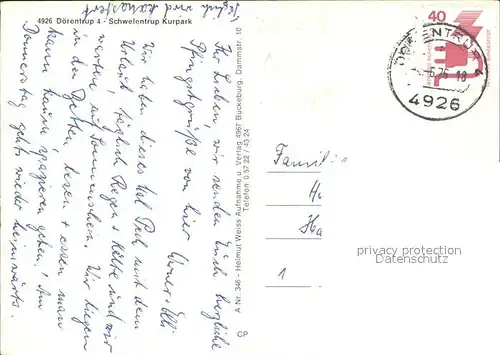 4926 Dörentrup 4 - Schwelentrup Kurpark
Täglich wird
Ihr Lieben, wir senden Euch herzliche
Pfingstgrüße von hier
Wir haben dieses Mal Pech mit dem
Urlaub, täglich Regen + Kälte und wir
warten auf Sonnenschein. Wir liegen
in den Betten, lesen + essen, man
kann kaum spazieren gehen! Am
Donnerstag gehts wieder heimwärts.
A Nr. 346 - Helmut Weiss Aufnahme u. Verlag 4967 Bückeburg, Dammstr. 10
Telefon 0 57 22 / 43 24
40
DÖRENTRUP 4
4926
Famili
Hu
Ha
1
privacy protection
Datenschutz